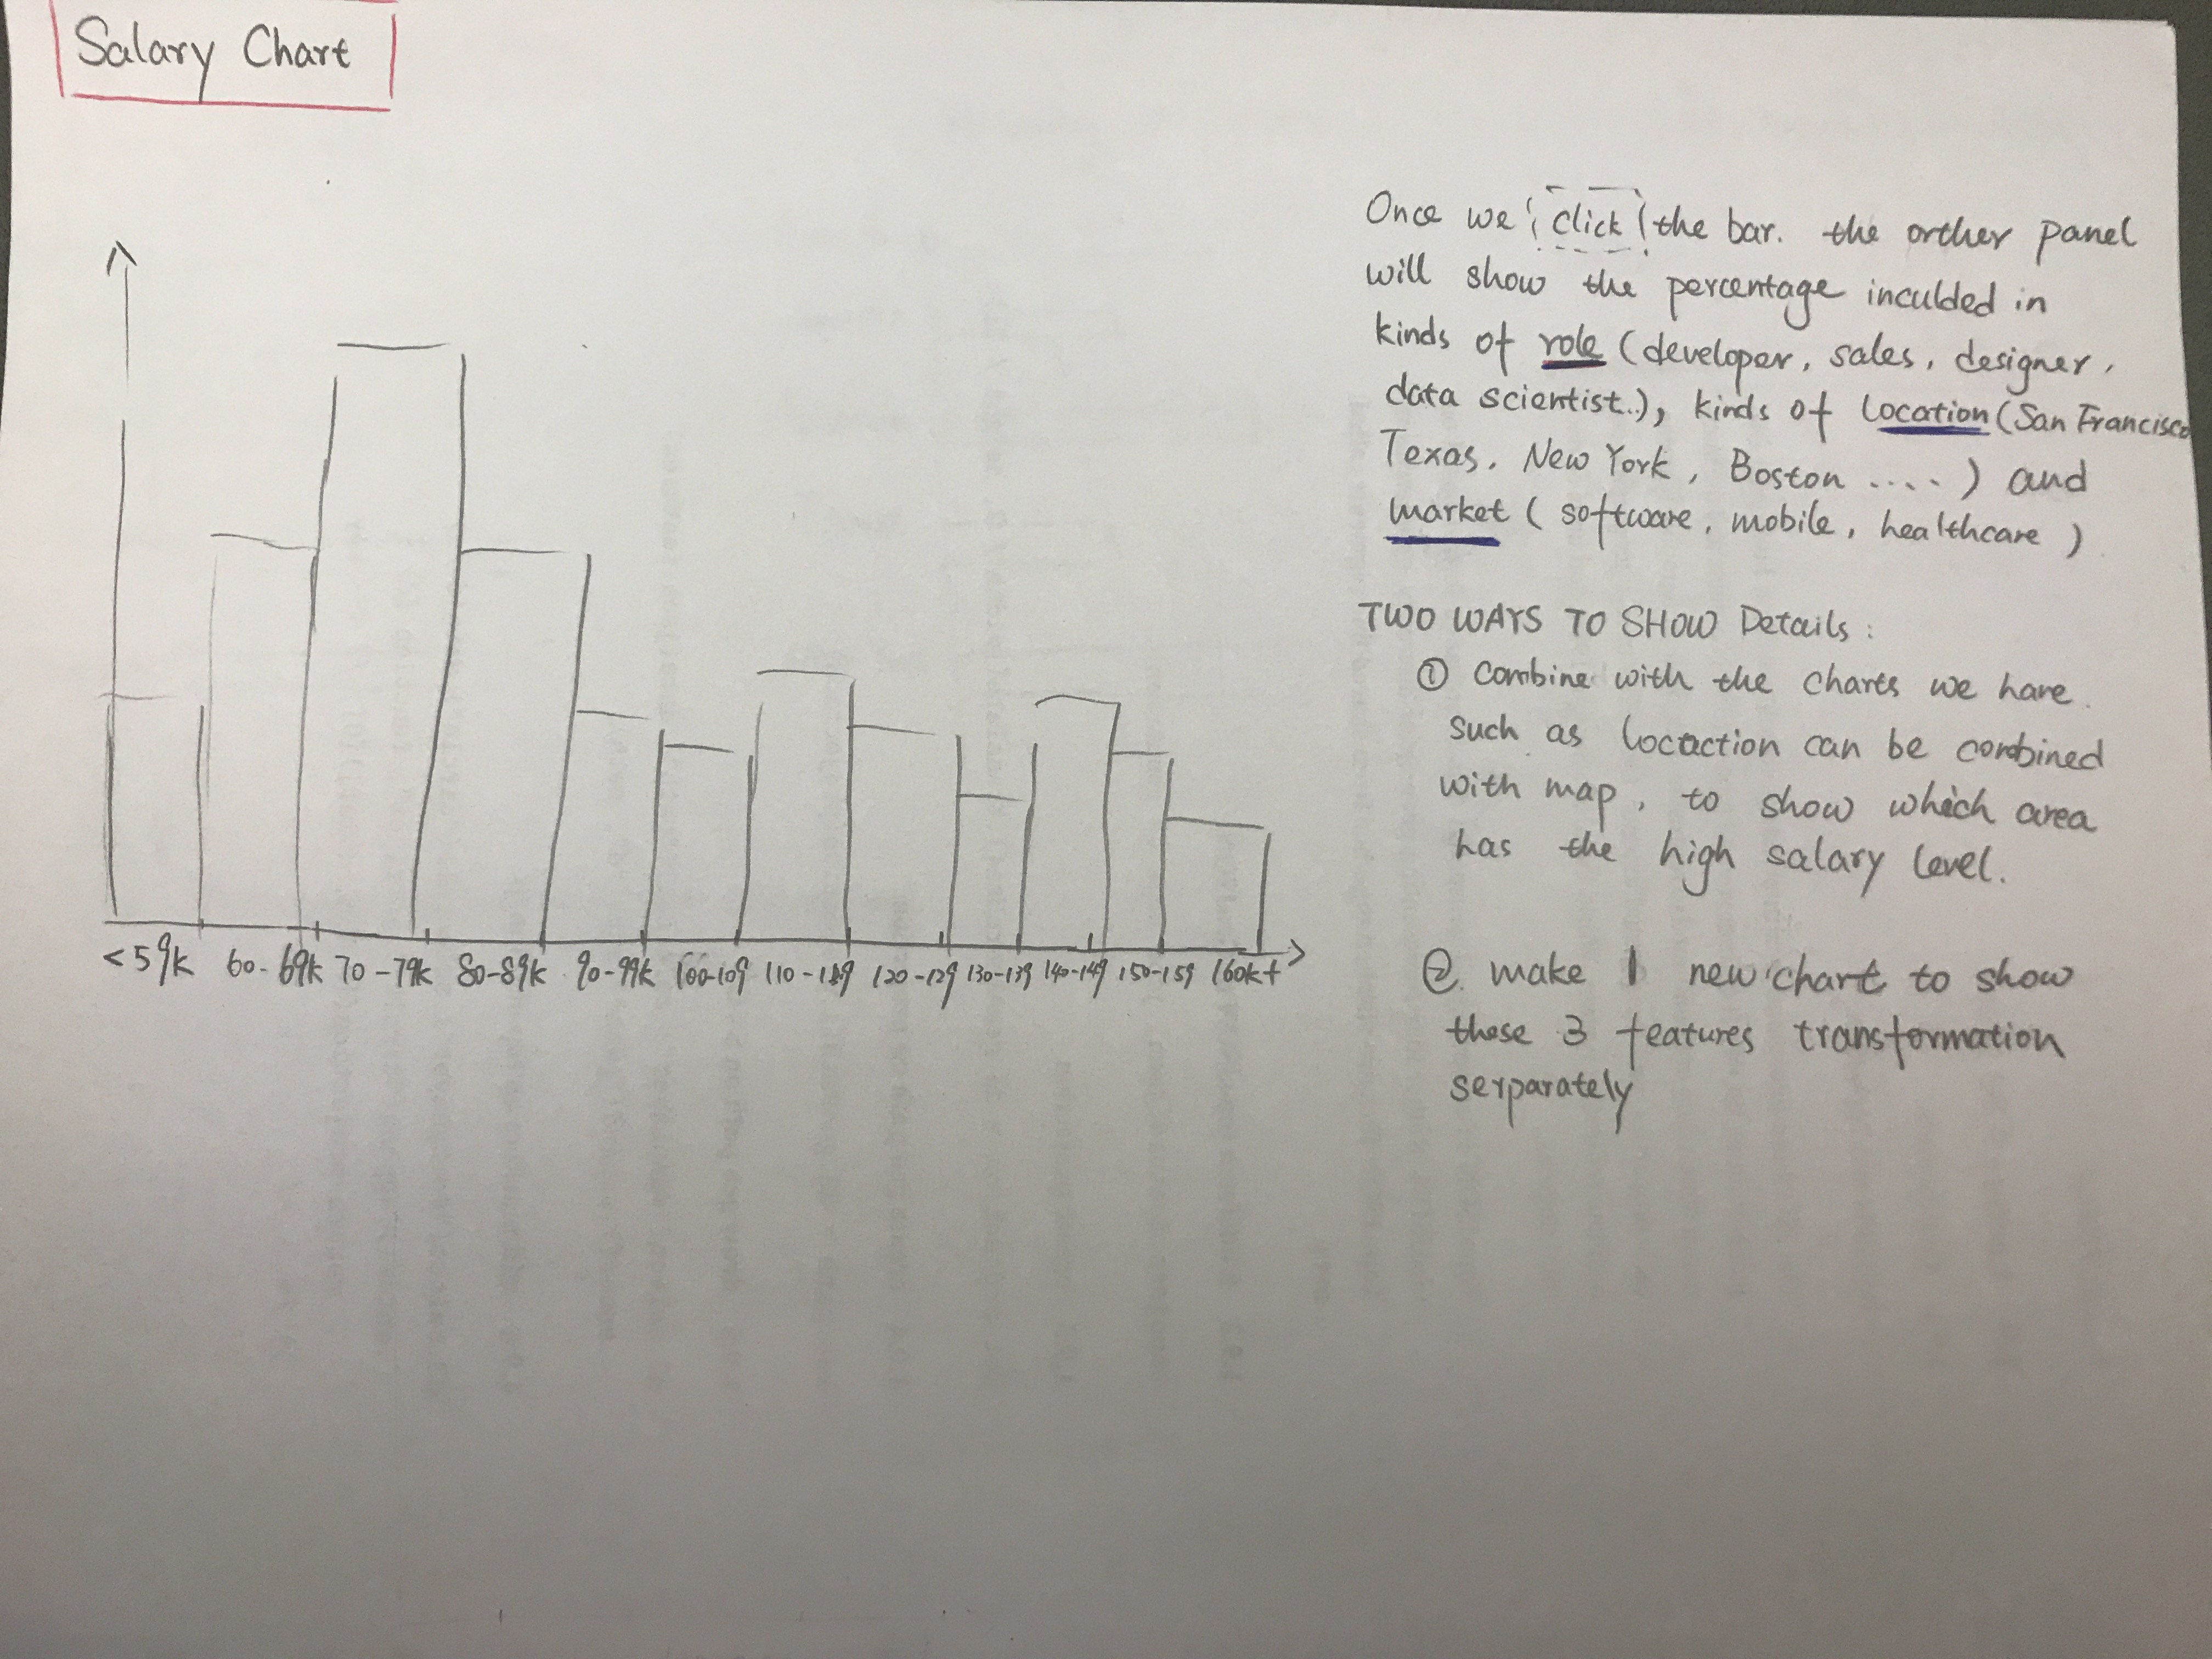 Salary Chart
<59k 60-69k 70-79k 80-89k 90-99k 100-109 110-119 120-129 130-139 140-149 150-159 160k+
Once we click the bar. the orther panel
will show the percentage inculded in
kinds of role (developer, sales, designer,
data scientist..), kinds of location (San Francisco
Texas, New York, Boston ....) and
market (software, mobile, healthcare)
TWO WAYS TO SHOW Details:
① combine with the chares we have.
Such as loctaction can be combined
with map, to show which area
has the high salary level.
②. make 1 new chart to show
these 3 features transformation
serparately